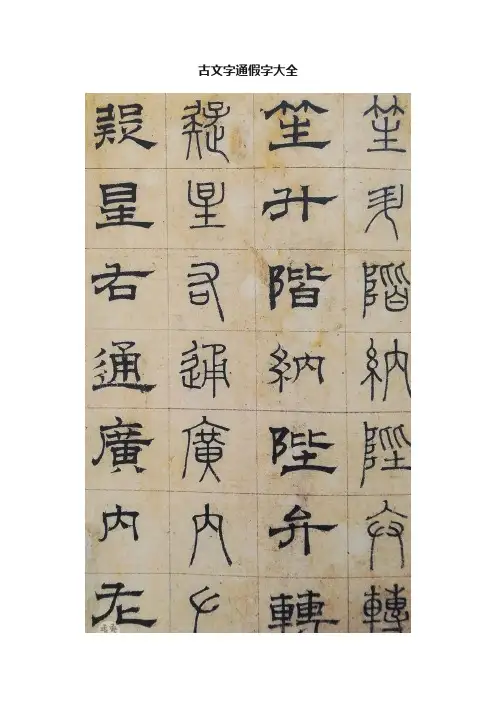 古文字通假字大全
笙升階納陛弁轉
笙升階納陛弁轉
疑星右通廣内左
疑星右通廣内左